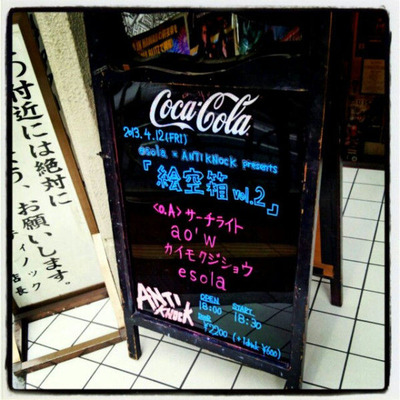 Coca-Cola
2013.4.12(FRI)
esola × ANTIKNOCK presents
「絵空箱 vol.2」
<O.A>サーチライト
ao'w
カイモクジショウ
esola
ANTI
KNOCK
OPEN
18:00
START
18:30
¥2200 (+1drink ¥600)
の付近には絶対に
お願いします。
ティノック
店長